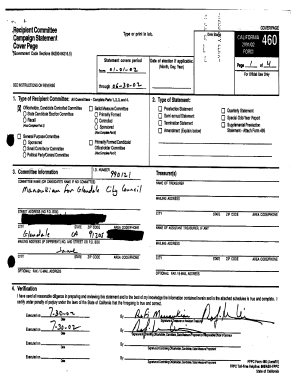 COVER PAGE
Recipient Committee
Campaign Statement
Cover Page
(Government Code Sections 84200-84216.5)
Type or print in ink.
Date Stamp
CALIFORNIA 460
2001/02
FORM
Statement covers period
from 01-01-02
through 06-30-02
Date of election if applicable:
(Month, Day, Year)
Page 1 of 4
For Official Use Only
SEE INSTRUCTIONS ON REVERSE
1. Type of Recipient Committee: All Committees - Complete Parts 1, 2, 3, and 4.
Officeholder, Candidate Controlled Committee
State Candidate Election Committee
Recall
(Also Complete Part 5)
General Purpose Committee
Sponsored
Small Contributor Committee
Political Party/Central Committee
Ballot Measure Committee
Primarily Formed
Controlled
Sponsored
(Also Complete Part 6)
Primarily Formed Candidate/
Officeholder Committee
(Also Complete Part 7)
2. Type of Statement:
Preelection Statement
Semi-annual Statement
Termination Statement
Amendment (Explain below)
Quarterly Statement
Special Odd-Year Report
Supplemental Preelection
Statement - Attach Form 495
3. Committee Information
I.D. NUMBER
990121
COMMITTEE NAME (OR CANDIDATE'S NAME IF NO COMMITTEE)
Manoukian for Glendale City Council
STREET ADDRESS (NO P.O. BOX)
CITY STATE ZIP CODE AREA CODE/PHONE
Glendale CA 91205
MAILING ADDRESS (IF DIFFERENT) NO. AND STREET OR P.O. BOX
Same
CITY STATE ZIP CODE AREA CODE/PHONE
OPTIONAL: FAX / E-MAIL ADDRESS
Treasurer(s)
NAME OF TREASURER
MAILING ADDRESS
CITY STATE ZIP CODE AREA CODE/PHONE
NAME OF ASSISTANT TREASURER, IF ANY
MAILING ADDRESS
CITY STATE ZIP CODE AREA CODE/PHONE
OPTIONAL: FAX / E-MAIL ADDRESS
4. Verification
I have used all reasonable diligence in preparing and reviewing this statement and to the best of my knowledge the information contained herein and in the attached schedules is true and complete. I
certify under penalty of perjury under the laws of the State of California that the foregoing is true and correct.
Executed on 7-30-02
Date
By
Executed on 7-30-02
Date
By
Executed on
Date
By
Executed on
Date
By
FPPC Form 460
FPPC Toll-Free Helpline: 866/ASK-FPPC
State of California